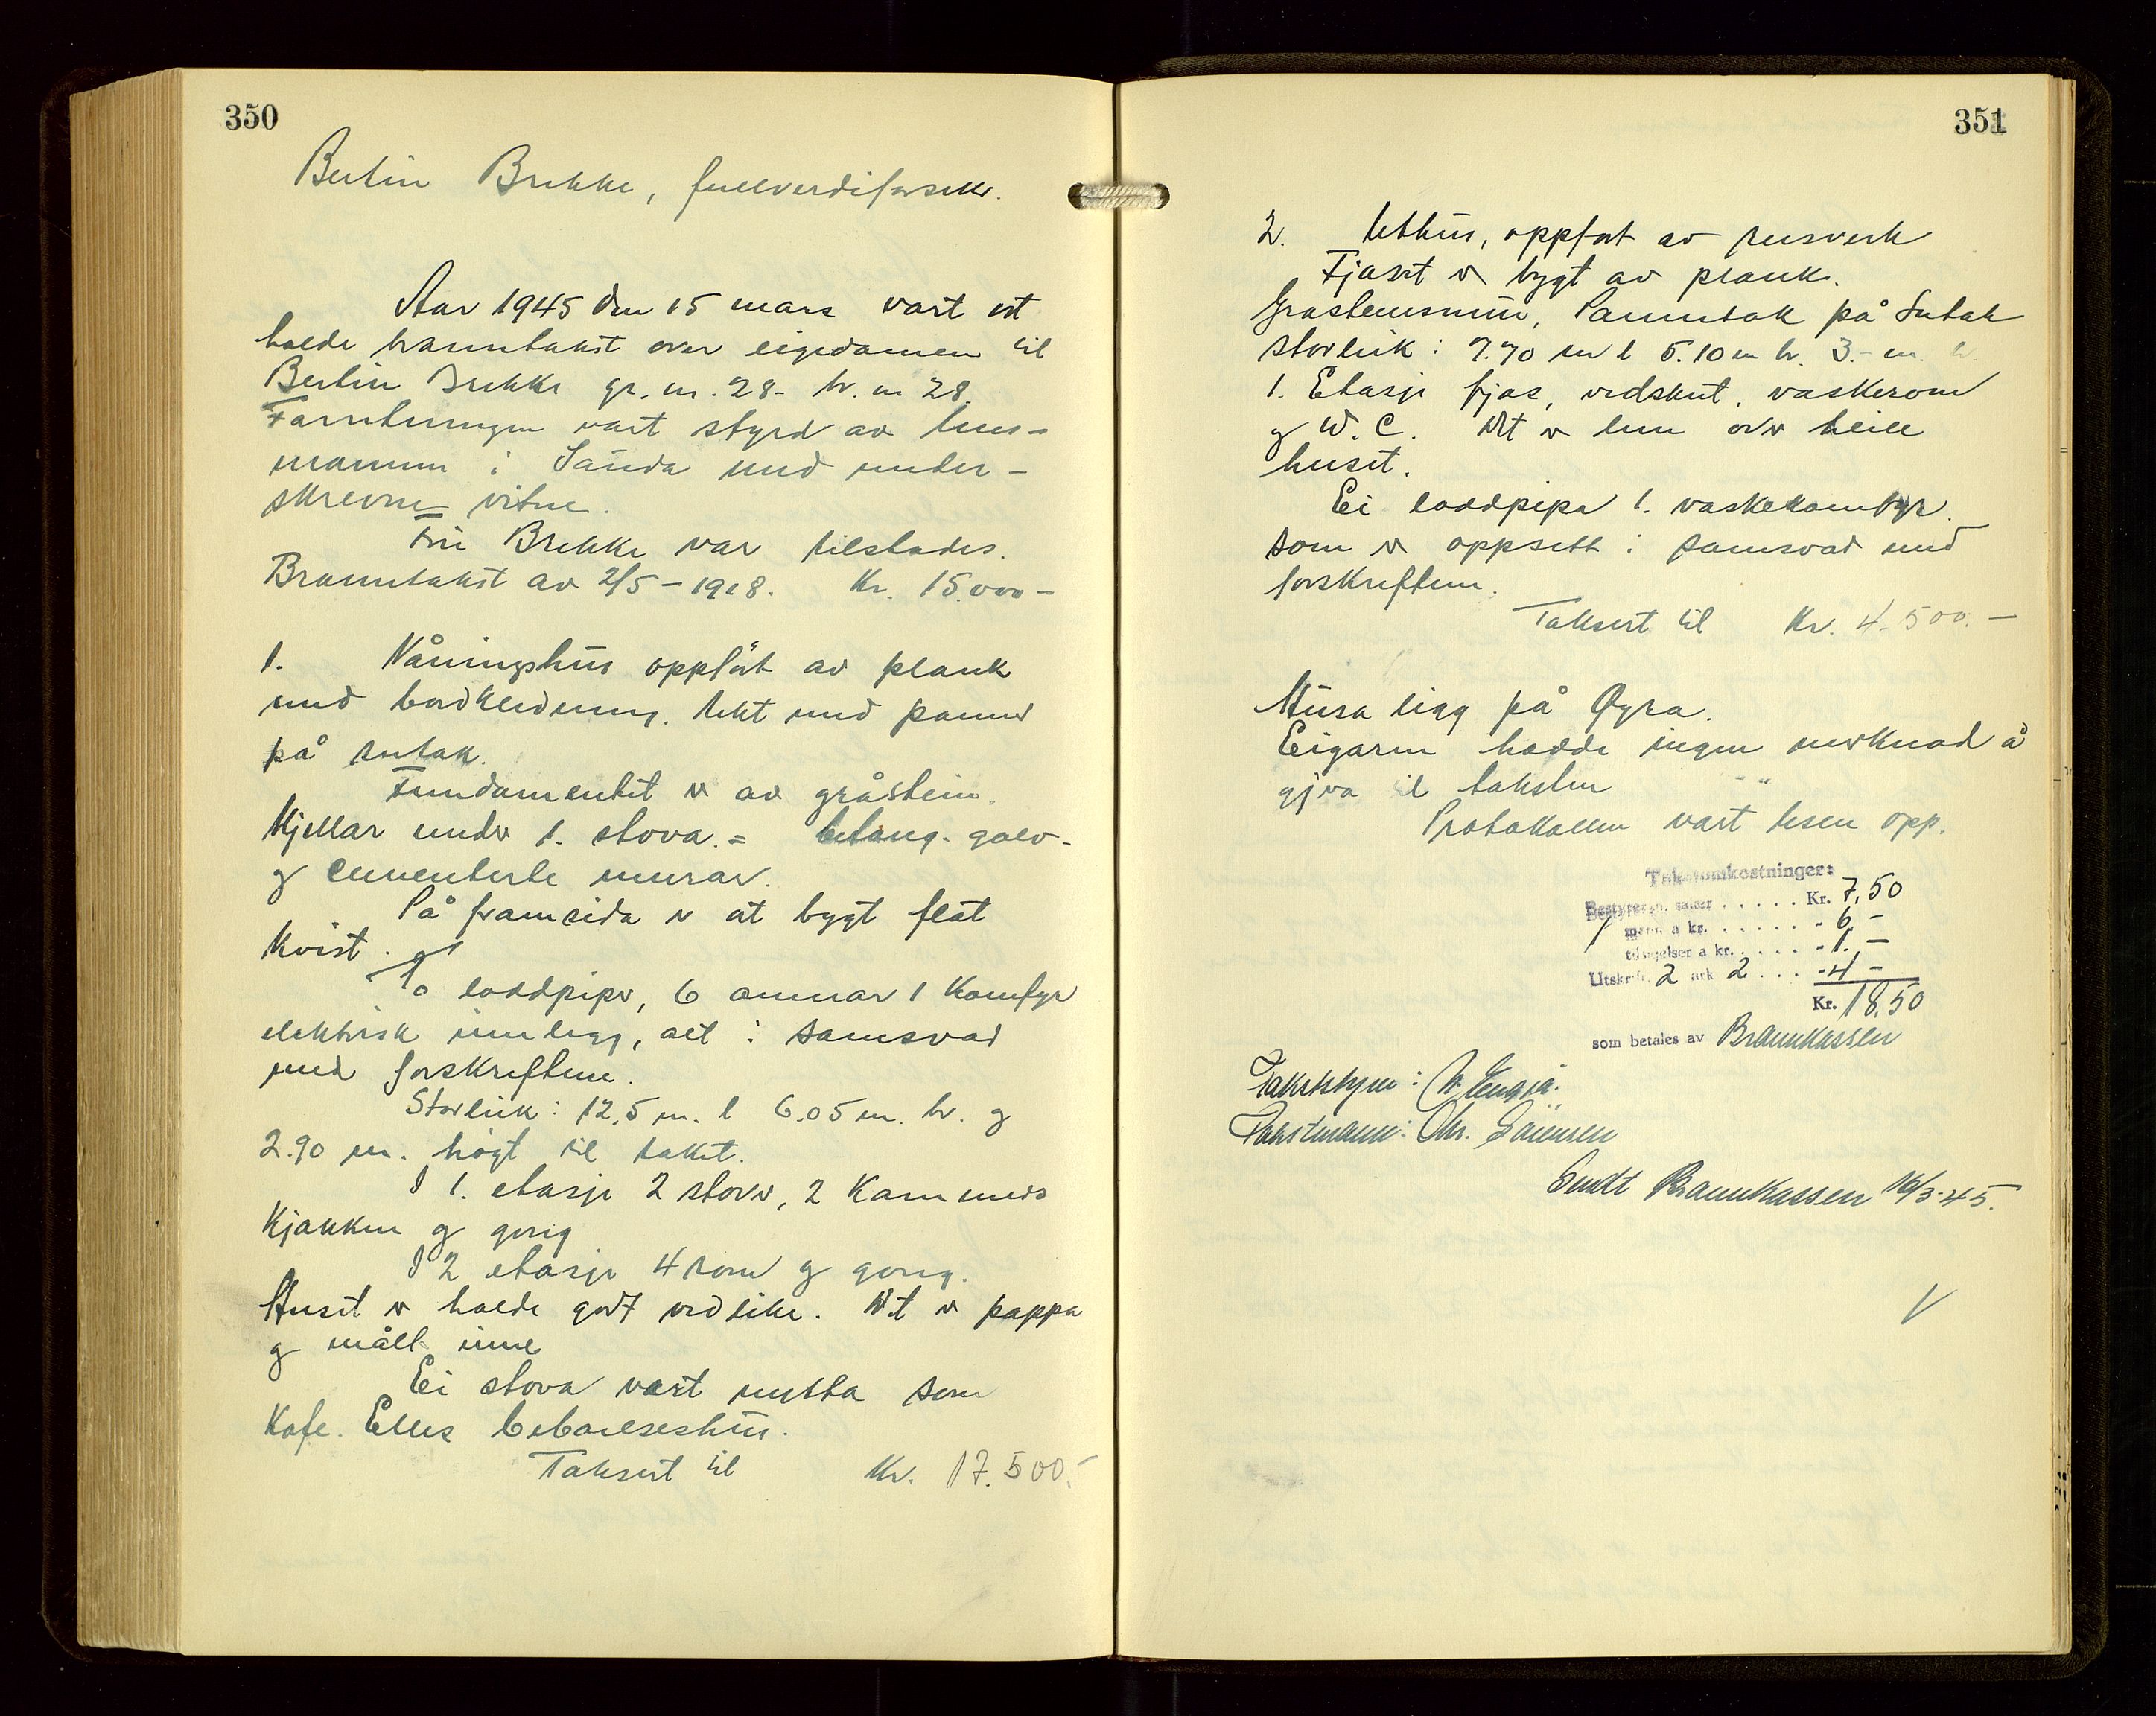 350
Bertin Brekke, fullverdiforsekr.
Aar 1945 den 15 mars vart et
halde branntakst over eigedommen til
Bertin Brekke gr. nr. 28 - br. nr 28.
Forretningen vart styrd av lens-
mannen i Sanda med under-
skrevne vitne.
Fru Brekke var tilstades.
Branntakst av 2/5 - 1918. Kr. 15.000 -
1. Våningshus oppført av plank
med bordkledning. Tekt med panner
på sutak.
Fundamentet er av gråstein.
Kjellar under 1. stova = betong. golv -
og cementerte murar.
På framsida er at bygt flat
Kvist.
To loddpiper, 6 omnar 1 Komfyr
elektrisk innlegg, alt i samsvar
med forskriftene.
Storleik: 12,5 m. l 6.05 m. br. og
2.90 m. høgt til taket.
I 1. etasje 2 stover, 2 Kammers
Kjøkken og gong
I 2 etasje 4 rom og gong.
Huset er halde godt vedlike. Det er pappa
og målt inne
Ei stova vart nytta som
Kafe. Elles bebœlseshus.
Taksert til Kr. 17.500.-
351
2. Uthus, oppført av reisverk
Fjøset er bygt av plank.
Grasteinsmur, Panntak på Sutak
storleik: 7.70 m l 5.10 m br. 3.- m. h.
1. Etasje fjøs, vedskut, vaskerom
og W.C. Det er lem over heile
huset.
Ei loddpipe 1. vaskekomfyr
som er oppsett i samsvar med
forskriftene.
Taksert til Kr. 4.500.-
Husa ligg på Øyra.
Eigaren hadde ingen merknad å
gjva til taksten
Protokollen vart lesen opp.
Takstomkostninger:
Bestyreren, salær ..... Kr. 7,50
1 mann a kr. ..... - 6,-
tilsigelser a kr. .... - 1.-
Utskrift 2 ark 2 ... - 4 -
Kr. 18,50
som betales av Brannkassen
Takststyrer: Engjà.
Takstmann: Chr. Sørensen
Sendt Brannkassen 16/3-45.